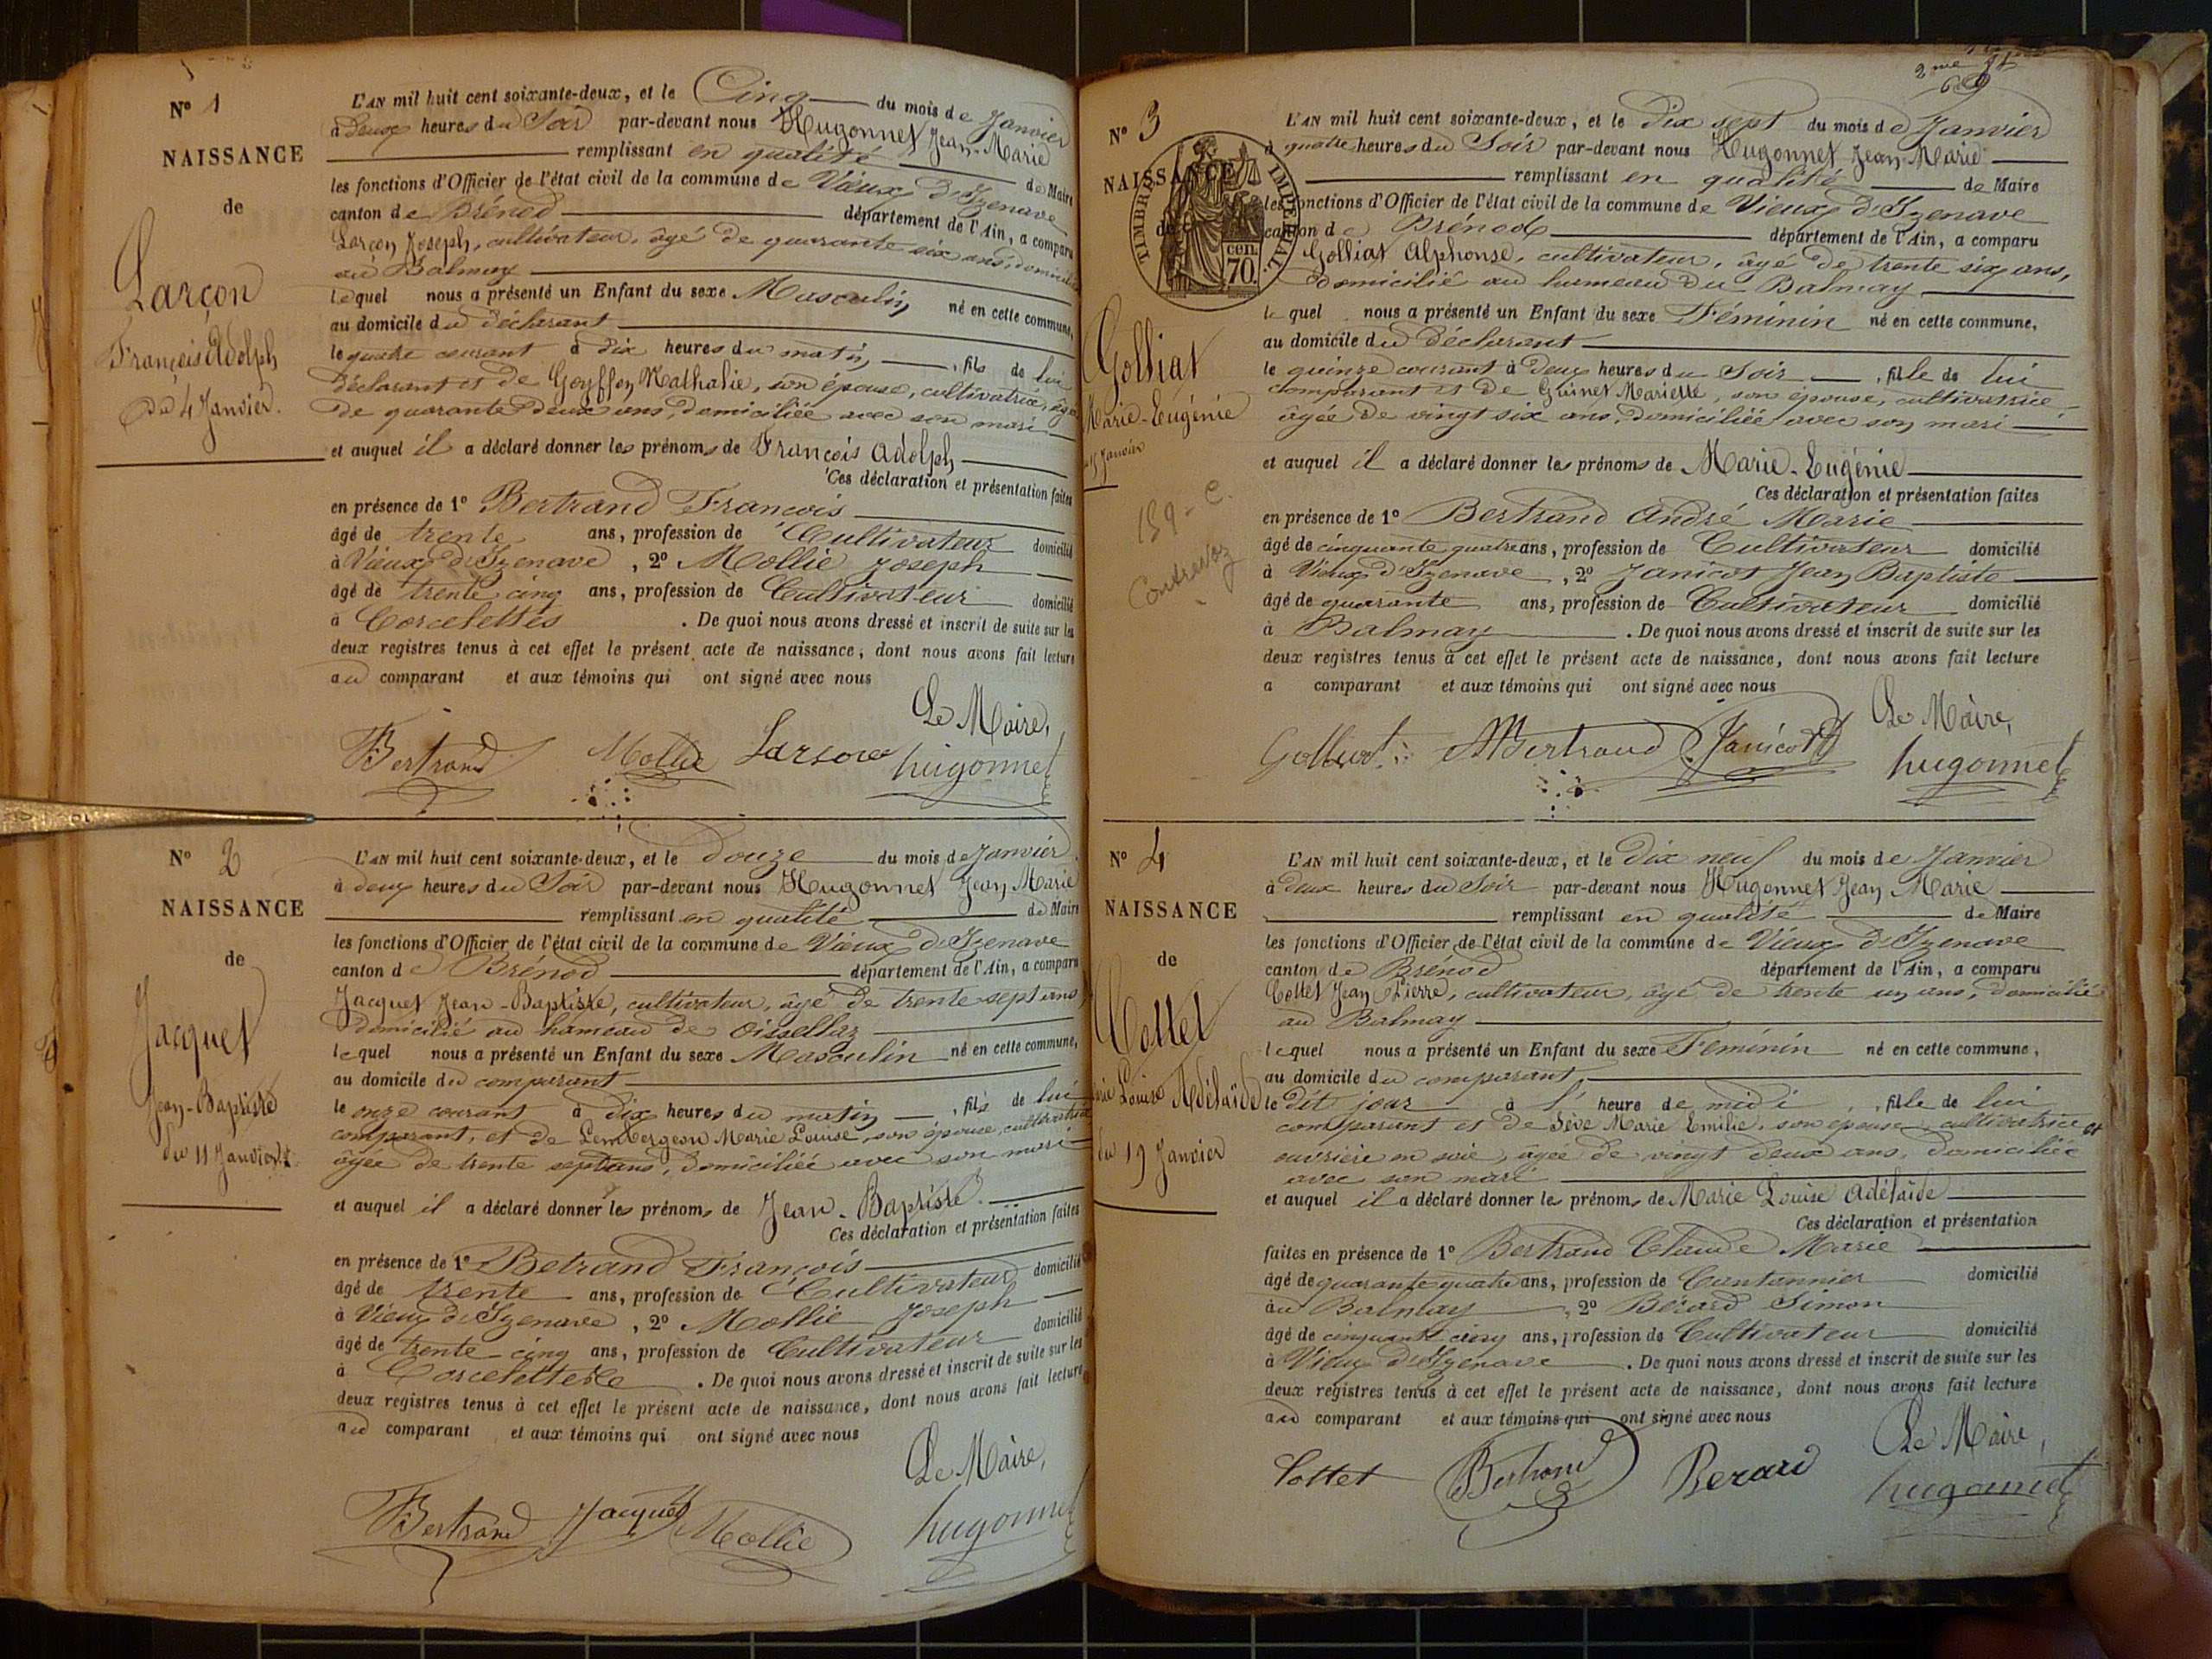 N° 1
NAISSANCE
de
Larçon
François Adolph
du 4 Janvier.
L'AN mil huit cent soixante-deux, et le Cinq du mois de Janvier
à deux heures du Soir par-devant nous Hugonnet Jean-Marie
remplissant en qualité de Maire
les fonctions d'Officier de l'état civil de la commune de Vieux d'Izenave
canton de Brénod département de l'Ain, a comparu
Larçon Joseph, cultivateur, âgé de quarante six ans, domicilié
au Balmay
lequel nous a présenté un Enfant du sexe Masculin né en cette commune,
au domicile du déclarant
le quatre courant à dix heures du matin, fils de lui
déclarant et de Goyffon Nathalie, son épouse, cultivatrice, âgée
de quarante deux ans, domiciliée avec son mari
et auquel il a déclaré donner les prénoms de François Adolph
Ces déclaration et présentation faites
en présence de 1° Bertrand François
âgé de trente ans, profession de Cultivateur domicilié
à Vieux d'Izenave, 2° Mollie Joseph
âgé de trente cinq ans, profession de Cultivateur domicilié
à Corcelettes. De quoi nous avons dressé et inscrit de suite sur les
deux registres tenus à cet effet le présent acte de naissance, dont nous avons fait lecture
au comparant et aux témoins qui ont signé avec nous
Le Maire,
Bertrand Mollie Larson hugonnet
N° 2
NAISSANCE
de
Jacquet
Jean-Baptiste
du 11 Janvier
L'AN mil huit cent soixante-deux, et le douze du mois de Janvier
à deux heures du Soir par-devant nous Hugonnet Jean Marie
remplissant en qualité de Maire
les fonctions d'Officier de l'état civil de la commune de Vieux d'Izenave
canton de Brénod département de l'Ain, a comparu
Jacquet Jean-Baptiste, cultivateur, âgé de trente sept ans
domicilié au hameau de Oissellaz
lequel nous a présenté un Enfant du sexe Masculin né en cette commune,
au domicile du comparant
le onze courant à dix heures du matin, fils de lui
comparant, et de Lembergeon Marie Louise, son épouse, cultivatrice
âgée de trente sept ans, domiciliée avec son mari
et auquel il a déclaré donner les prénoms de Jean-Baptiste.
Ces déclaration et présentation faites
en présence de 1° Betrand François
âgé de trente ans, profession de Cultivateur domicilié
à Vieux d'Izenave, 2° Mollie Joseph
âgé de trente-cinq ans, profession de Cultivateur domicilié
à . De quoi nous avons dressé et inscrit de suite sur les
deux registres tenus à cet effet le présent acte de naissance, dont nous avons fait lecture
au comparant et aux témoins qui ont signé avec nous
Le Maire,
Bertrand Jacquet Mollie hugonnet
2me
69
N° 3
NAISSANCE
de
TIMBRE IMPERIAL.
70. cen.
Golliat
Marie-Eugénie
15 Janvier
159 - C.
L'AN mil huit cent soixante-deux, et le dix sept du mois de Janvier
à quatre heures du Soir par-devant nous Hugonnet Jean-Marie
remplissant en qualité de Maire
les fonctions d'Officier de l'état civil de la commune de Vieux d'Izenave
canton de Brénod département de l'Ain, a comparu
Golliat Alphonse, cultivateur, âgé de trente six ans,
domicilié au hameau du Balmay
lequel nous a présenté un Enfant du sexe Féminin né en cette commune,
au domicile du déclarant
le quinze courant à deux heures du Soir, fille de lui
comparant et de Guinet Mariette, son épouse, cultivatrice,
âgée de vingt six ans, domiciliée avec son mari
et auquel il a déclaré donner les prénoms de Marie-Eugénie
Ces déclaration et présentation faites
en présence de 1° Bertrand André Marie
âgé de cinquante quatre ans, profession de Cultivateur domicilié
à Vieux d'Izenave, 2° Janicot Jean Baptiste
âgé de quarante ans, profession de Cultivateur domicilié
à Balmay. De quoi nous avons dressé et inscrit de suite sur les
deux registres tenus à cet effet le présent acte de naissance, dont nous avons fait lecture
a comparant et aux témoins qui ont signé avec nous
Le Maire,
Golliat AMBertrand Janicot hugonnet
N° 4
NAISSANCE
de
Cottet
Marie Louise Adélaïde
du 19 Janvier
L'AN mil huit cent soixante-deux, et le dix neuf du mois de Janvier
à deux heures du Soir par-devant nous Hugonnet Jean Marie
remplissant en qualité de Maire
les fonctions d'Officier de l'état civil de la commune de Vieux d'Izenave
canton de Brénod département de l'Ain, a comparu
Cottet Jean Pierre, cultivateur, âgé de trente un ans, domicilié
au Balmay
lequel nous a présenté un Enfant du sexe Féminin né en cette commune,
au domicile du comparant,
le dit jour à l' heure de midi, fille de lui
comparant et de Sève Marie Emilie, son épouse cultivatrice et
ouvrière en soie, âgée de vingt deux ans, domiciliée
avec son mari
et auquel il a déclaré donner les prénoms de Marie Louise Adélaïde
Ces déclaration et présentation
faites en présence de 1° Bertrand Claude Marie
âgé de quarante quatre ans, profession de Cantonnier domicilié
au Balmay, 2° Bérard Simon
âgé de cinquante cinq ans, profession de Cultivateur domicilié
à Vieux d'Izenave. De quoi nous avons dressé et inscrit de suite sur les
deux registres tenus à cet effet le présent acte de naissance, dont nous avons fait lecture
au comparant et aux témoins qui ont signé avec nous
Le Maire,
Cottet Bertrand Berard hugonnet